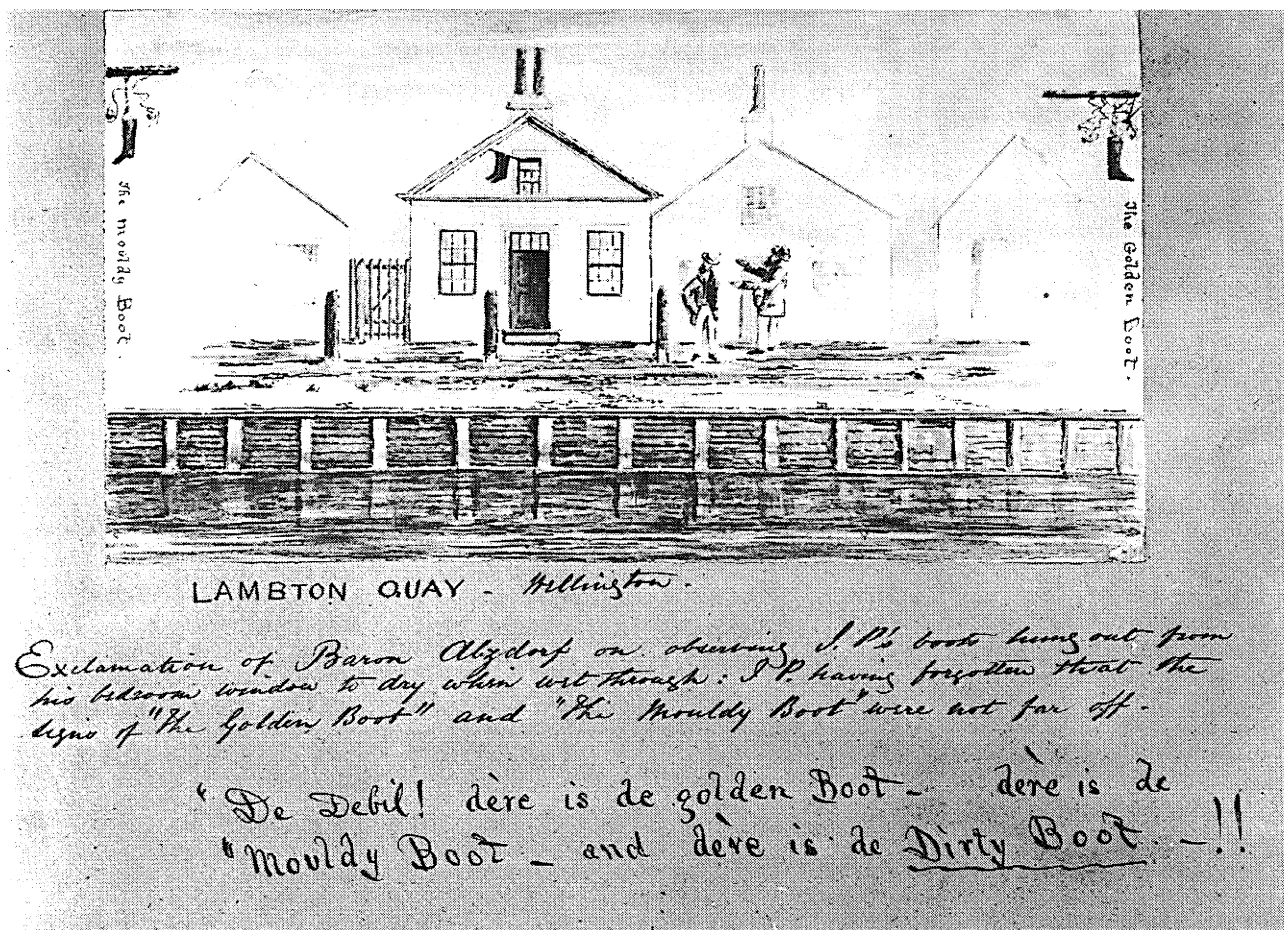 The mouldy Boot.
The Golden Boot.
LAMBTON QUAY - Wellington.
Exclamation of Baron Alzdorf on observing J. P's boots hung out from
his bedroom window to dry when wet through: J P. having forgotten that the
signs of "The Golden Boot" and "The Mouldy Boot" were not far off.
"De Debil! dère is de golden Boot - dère is de
"Mouldy Boot - and dère is de Dirty Boot. -!!